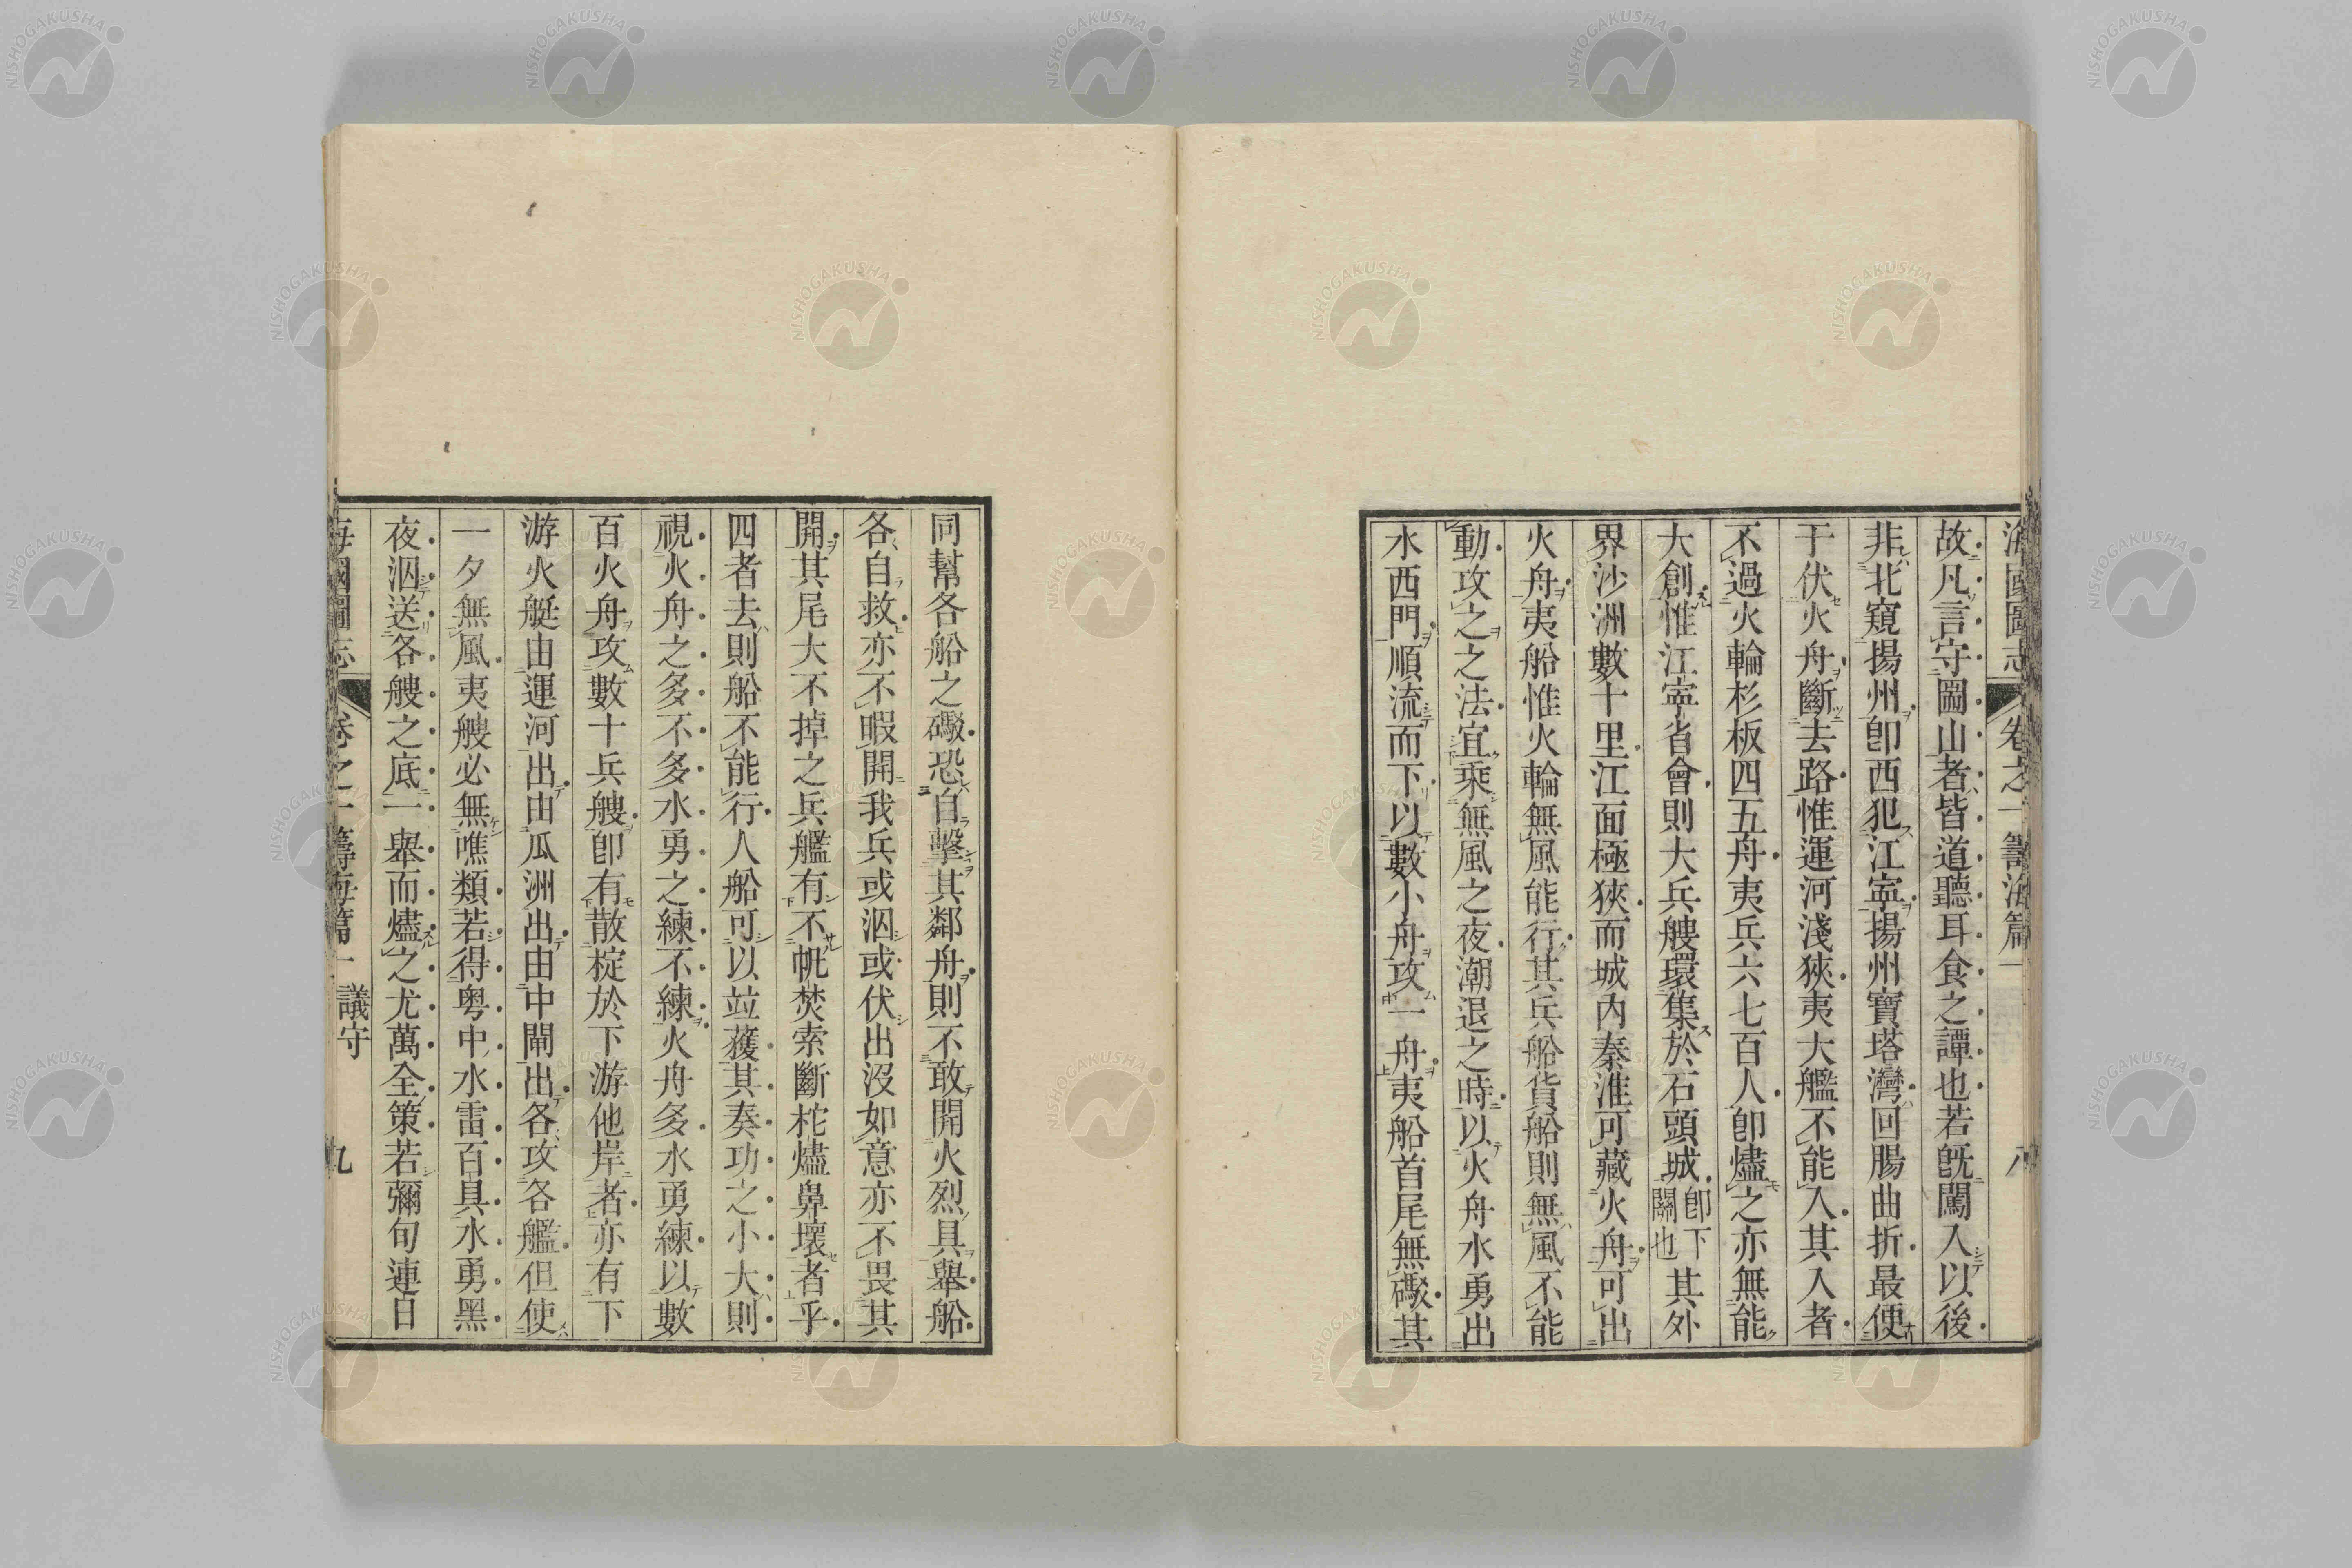 海國圖志 卷之一 籌海篇一 八
故凡言守圌山者皆道聽耳食之譚也若既闖入以後
非北窺揚州卽西犯江寧揚州寶塔灣回腸曲折最便
于伏火舟斷去路惟運河淺狹夷大艦不能入其入者
不過火輪杉板四五舟夷兵六七百人卽燼之亦無能
大創惟江寧省會則大兵艘環集於石頭城卽下關也其外
界沙洲數十里江面極狹而城內秦淮可藏火舟可出
火舟夷船惟火輪無風能行其兵船貨船則無風不能
動攻之之法宜乘無風之夜潮退之時以火舟水勇出
水西門順流而下以數小舟攻一舟夷船首尾無礮其
同幫各船之礮恐自擊其鄰舟則不敢開火烈具舉船
各自救亦不暇開我兵或泅或伏出沒如意亦不畏其
開其尾大不掉之兵艦有不帆焚索斷柁燼鼻壞者乎
四者去則船不能行人船可以竝獲其奏功之小大則
視火舟之多不多水勇之練不練火舟多水勇練以數
百火舟攻數十兵艘卽有散椗於下游他岸者亦有下
游火艇由運河出由瓜洲出由中閘出各攻各艦但使
一夕無風夷艘必無噍類若得粵中水雷百具水勇黑
夜泅送各艘之底一舉而燼之尤萬全策若彌旬連日
海國圖志 卷之一 籌海篇一 議守 九
NISHOGAKUSHA